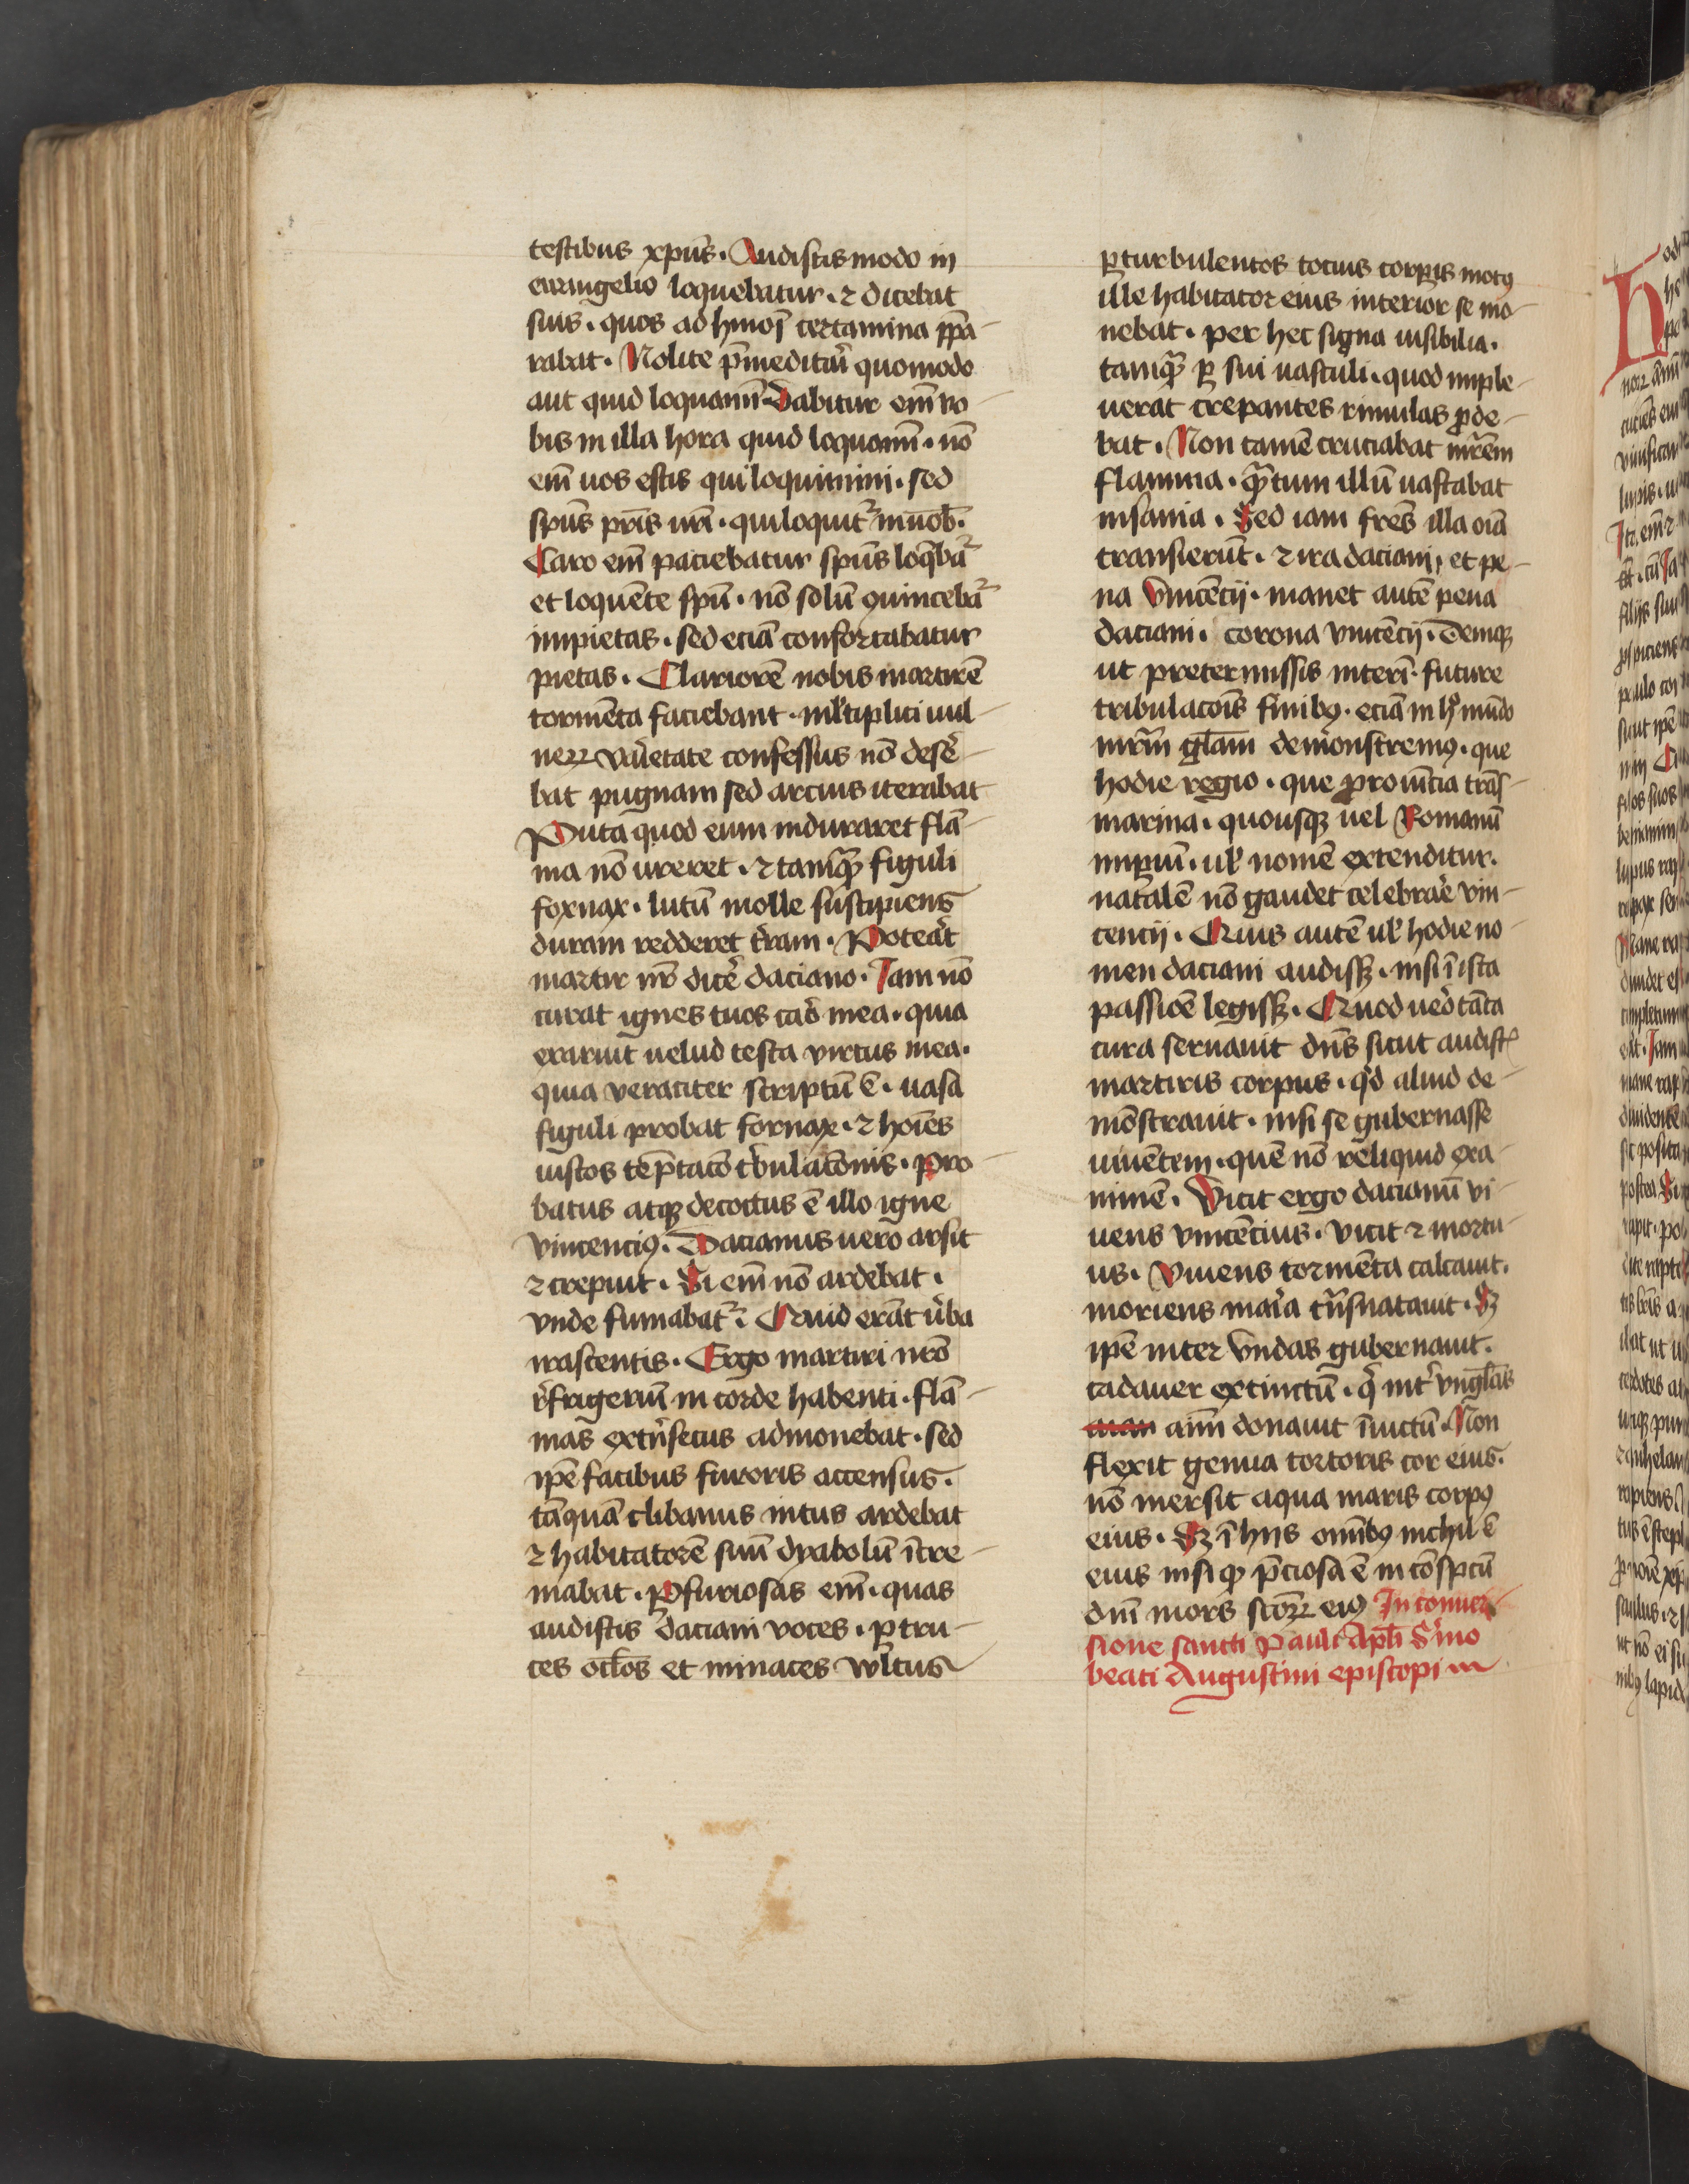 testibus xpūs. Audistis modo in
euangelio loquebatur. ⁊ dicebat
suis. quos ad hmōi certamina ꝑpa-
rabat. Nolite p̄meditari quomodo
aut quid loquamī. Dabitur em̄ vo-
bis in illa hora quid loquamī. nō
em̄ uos estis qui loquimini. sed
spūs pr̄is vr̄i. qui loquit᷑ in uob̄.
Caro em̄ paciebatur spūs loq̄bat᷑
et loquente spū. nō solū ꝯuincebat᷑
impietas. sed eciā confortabatur
pietas. Clariorē nobis martirē
tormēta faciebant. ml̄tiplici uul-
neꝝ varietate confessus nō deser̄e-
bat pugnam sed arcius iterabat
Puta quod eum induraret flā-
ma nō ureret. ⁊ tamꝙ̄ figuli
fornax. lutū molle suscipiens
duram redderet t̄ram. Poterat
martir nr̄ dicer̄e daciano. Iam nō
curat ignes tuos caro mea. quia
exaruit uelud testa virtus mea.
quia veraciter scriptū ē. uasa
figuli probat fornax. ⁊ hoīes
iustos tēptacō tribulacōnis. pro-
batus atqꝫ decoctus ē illo igne
vincenciꝰ. Dacianus uero arsit
⁊ crepuit. Si em̄ nō ardebat.
vnde fumabat᷑. Quid erāt ūba
irascentis. Ergo martiri nr̄o
refrigeriū in corde habenti. flā-
mas extrinsecus admonebat. sed
ipē facibus furoris accensus.
tāquā clibanus intus ardebat
⁊ habitatorē suū dyabolū īcre-
mabat. Ꝑ furiosas em̄. quas
audistis daciani voces. ꝑ tru-
ces ocl̄os et minaces vultus
ꝑ turbulentos tocius corꝑis motꝰ
ille habitator eius interior se mo-
nebat. per hec signa uisibilia.
tamꝙ̄ ꝑ sui uasculi. quod imple-
uerat crepantes rimulas ꝓde-
bat. Non tamē cruciabat mr̄em
flamma. ꝙ̄tum illū uastabat
insania. Sed iam fr̄es illa oīa
transierūt. ⁊ ira daciani, et pe-
na Vincēcij. manet autē pena
daciani. corona vincēcij. Deniqꝫ
ut pretermissis interī. future
tribulacōis finibꝰ. eciā in hoc mūdo
mr̄im gl̄am demonstremꝰ. que
hodie regio. que prouīncia trās-
marina. quousqꝫ uel Romanū
imꝑiū. ul̄ nomē extenditur.
natalē nō gaudet celebrare vin-
cencij. Cuius autē ul̄ hodie no-
men daciani audissꝫ. nisi ī ista
passiōe legissꝫ. Quod uero tāta
cura seruauit dn̄s sicut audistꝭ
martiris corpus. qd̄ aliud de-
mōstrauit. nisi se gubernasse
uiuentem. quē nō reliquid exa-
nimē. Vicit ergo dacianū vi-
uens vincēcius. vicit ⁊ mortu-
us. Viuens tormēta calcauit.
moriens maria trāsnatauit. Sꝫ
ipē inter vndas gubernauit.
cadauer extinctū. q̄ int̄ vngl̄as
aīm donauit īuictū. Non
flexit genua tortoris cor eius.
nō mersit aqua maris corpꝰ
eius. Sꝫ ī hijs omībꝰ nichil ē
eius nisi qꝫ p̄ciosa ē in cōspctū
dn̄i mors scōꝝ eiꝰ In conuer
sione sancti Pauli Apl̄i Sermo
beati Augustini episcopi